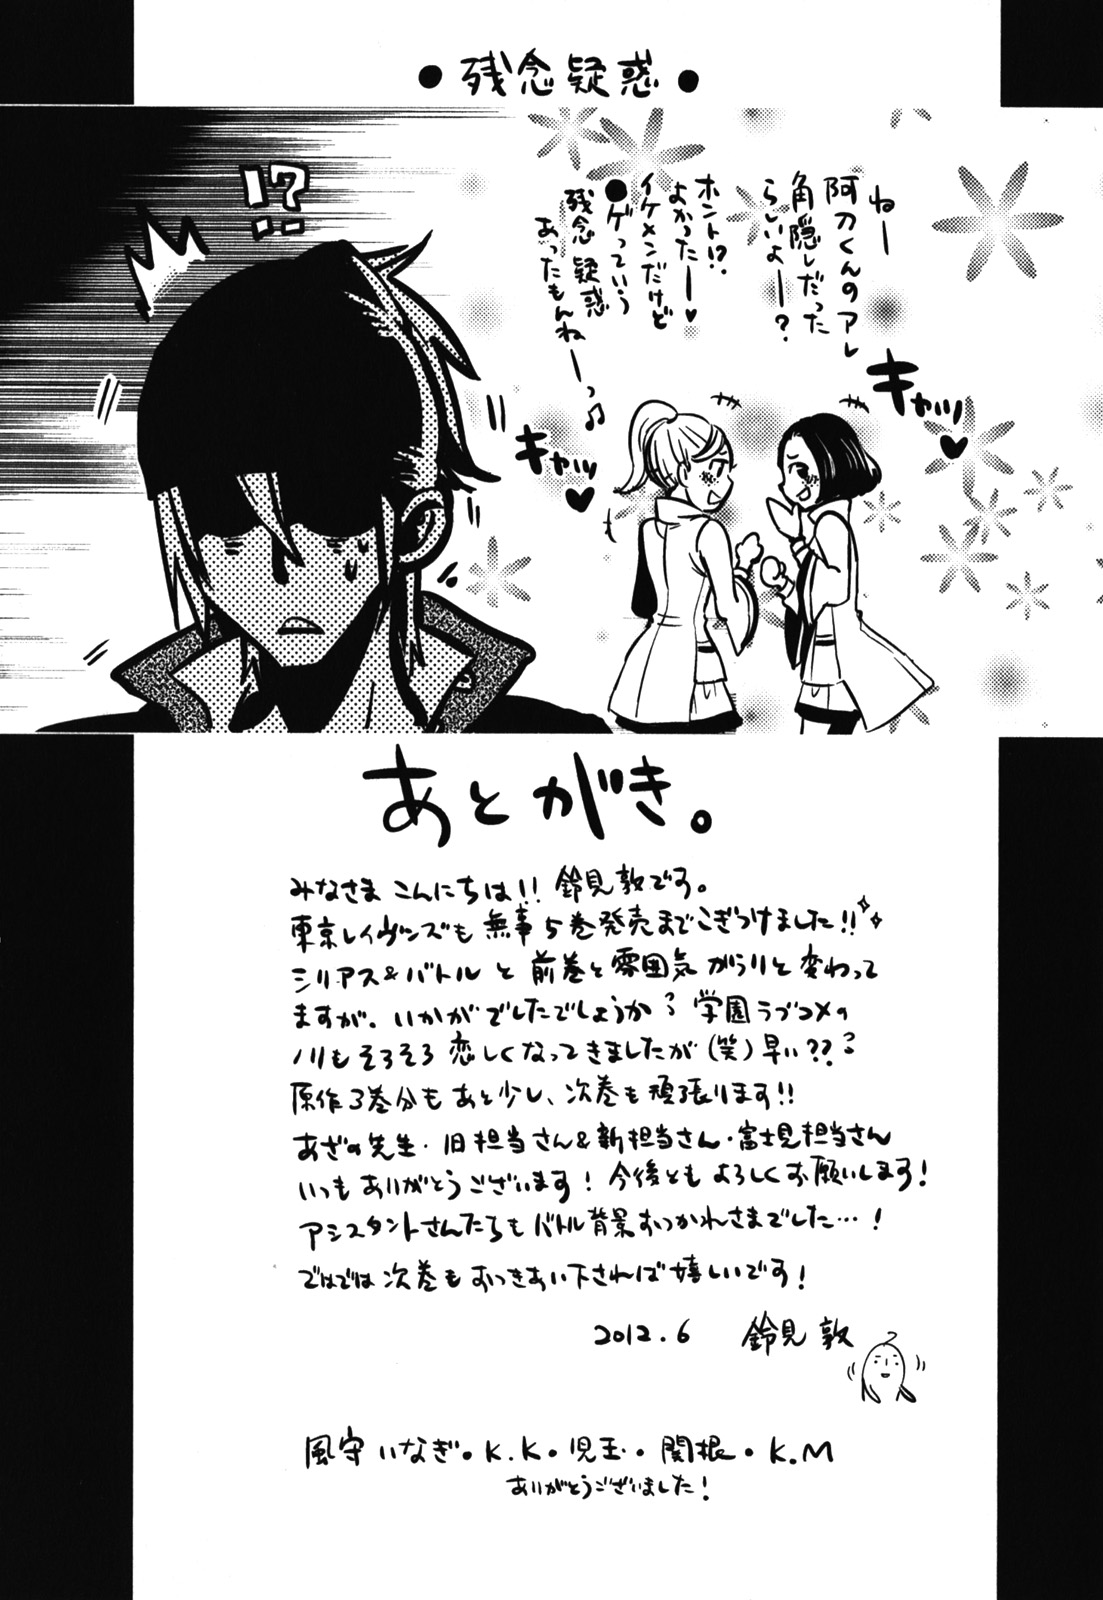 ●残念疑惑●
!?
ねー
阿刀くんのアレ
角隠しだった
らしいよー?
ホント!?
よかったー♥
イケメンだけど
●ゲっていう
残念疑惑
あったもんねーっ♪
キャッ♥
キャッ♥
あとがき。
みなさま こんにちは!! 鈴見敦です。
東京レイヴンズも 無事5巻発売までこぎつけました!!
シリアス&バトル と 前巻と雰囲気 がらりと変わって
ますが、いかがでしたでしょうか? 学園ラブコメの
ノリもそろそろ 恋しくなってきましたが(笑)早い???
原作3巻分も あと少し、次巻も頑張ります!!
あざの先生・旧担当さん&新担当さん・富士見担当さん
いつも ありがとうございます! 今後とも よろしくお願いします!
アシスタントさんたちも バトル背景おつかれさまでした…!
ではでは 次巻も おつきあい下されば 嬉しいです!
2012.6 鈴見 敦
風守いなぎ・K.K・児玉・関根・K.M
ありがとうございました!